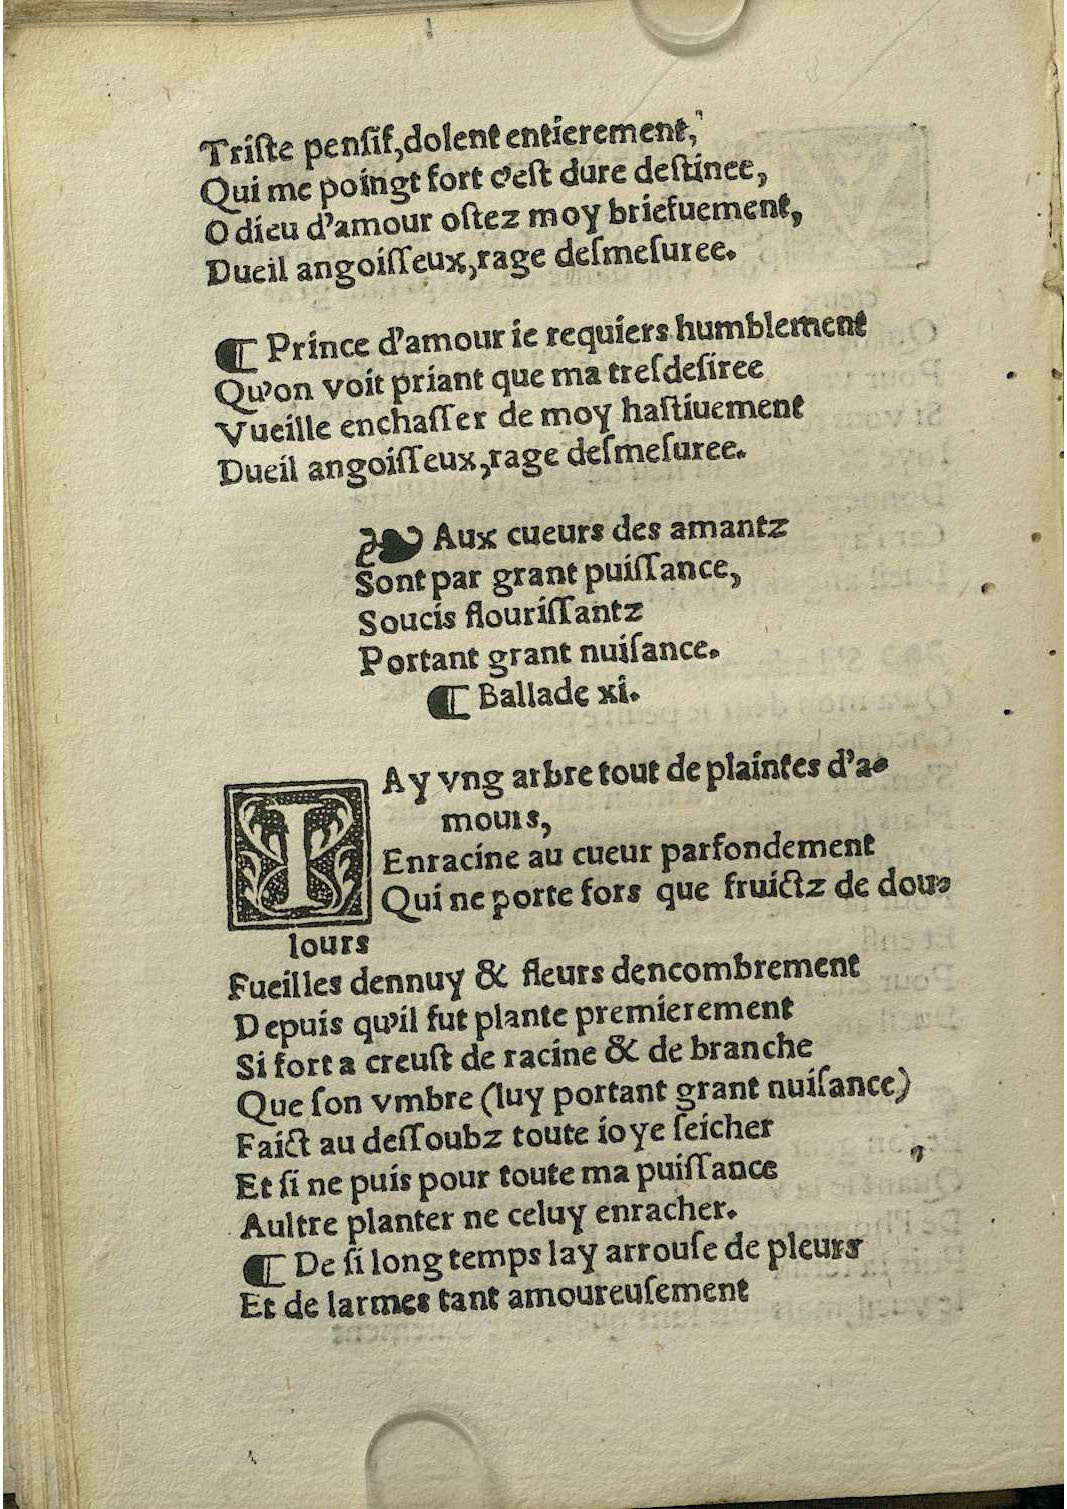 Triſte penſif, dolent entierement,
Qui me poingt fort c'eſt dure deſtinee,
O dieu d'amour oſtez moy briefuement,
Dueil angoiſſeux, rage deſmeſuree.
¶ Prince d'amour ie requiers humblement
Qu'on voit priant que ma treſdeſiree
Vueille enchaſſer de moy haſtiuement
Dueil angoiſſeux, rage deſmeſuree.
❧ Aux cueurs des amantz
Sont par grant puiſſance,
Soucis flouriſſantz
Portant grant nuiſance.
¶ Ballade xi.
IAy vng arbre tout de plaintes d'a-
mours,
Enracine au cueur parfondement
Qui ne porte fors que fruictz de dou-
lours
Fueilles dennuy & fleurs dencombrement
Depuis qu'il fut plante premierement
Si fort a creuſt de racine & de branche
Que ſon vmbre (luy portant grant nuiſance)
Faict au deſſoubz toute ioye ſeicher
Et ſi ne puis pour toute ma puiſſance
Aultre planter ne celuy enracher.
¶ De ſi long temps lay arrouſe de pleurs
Et de larmes tant amoureuſement